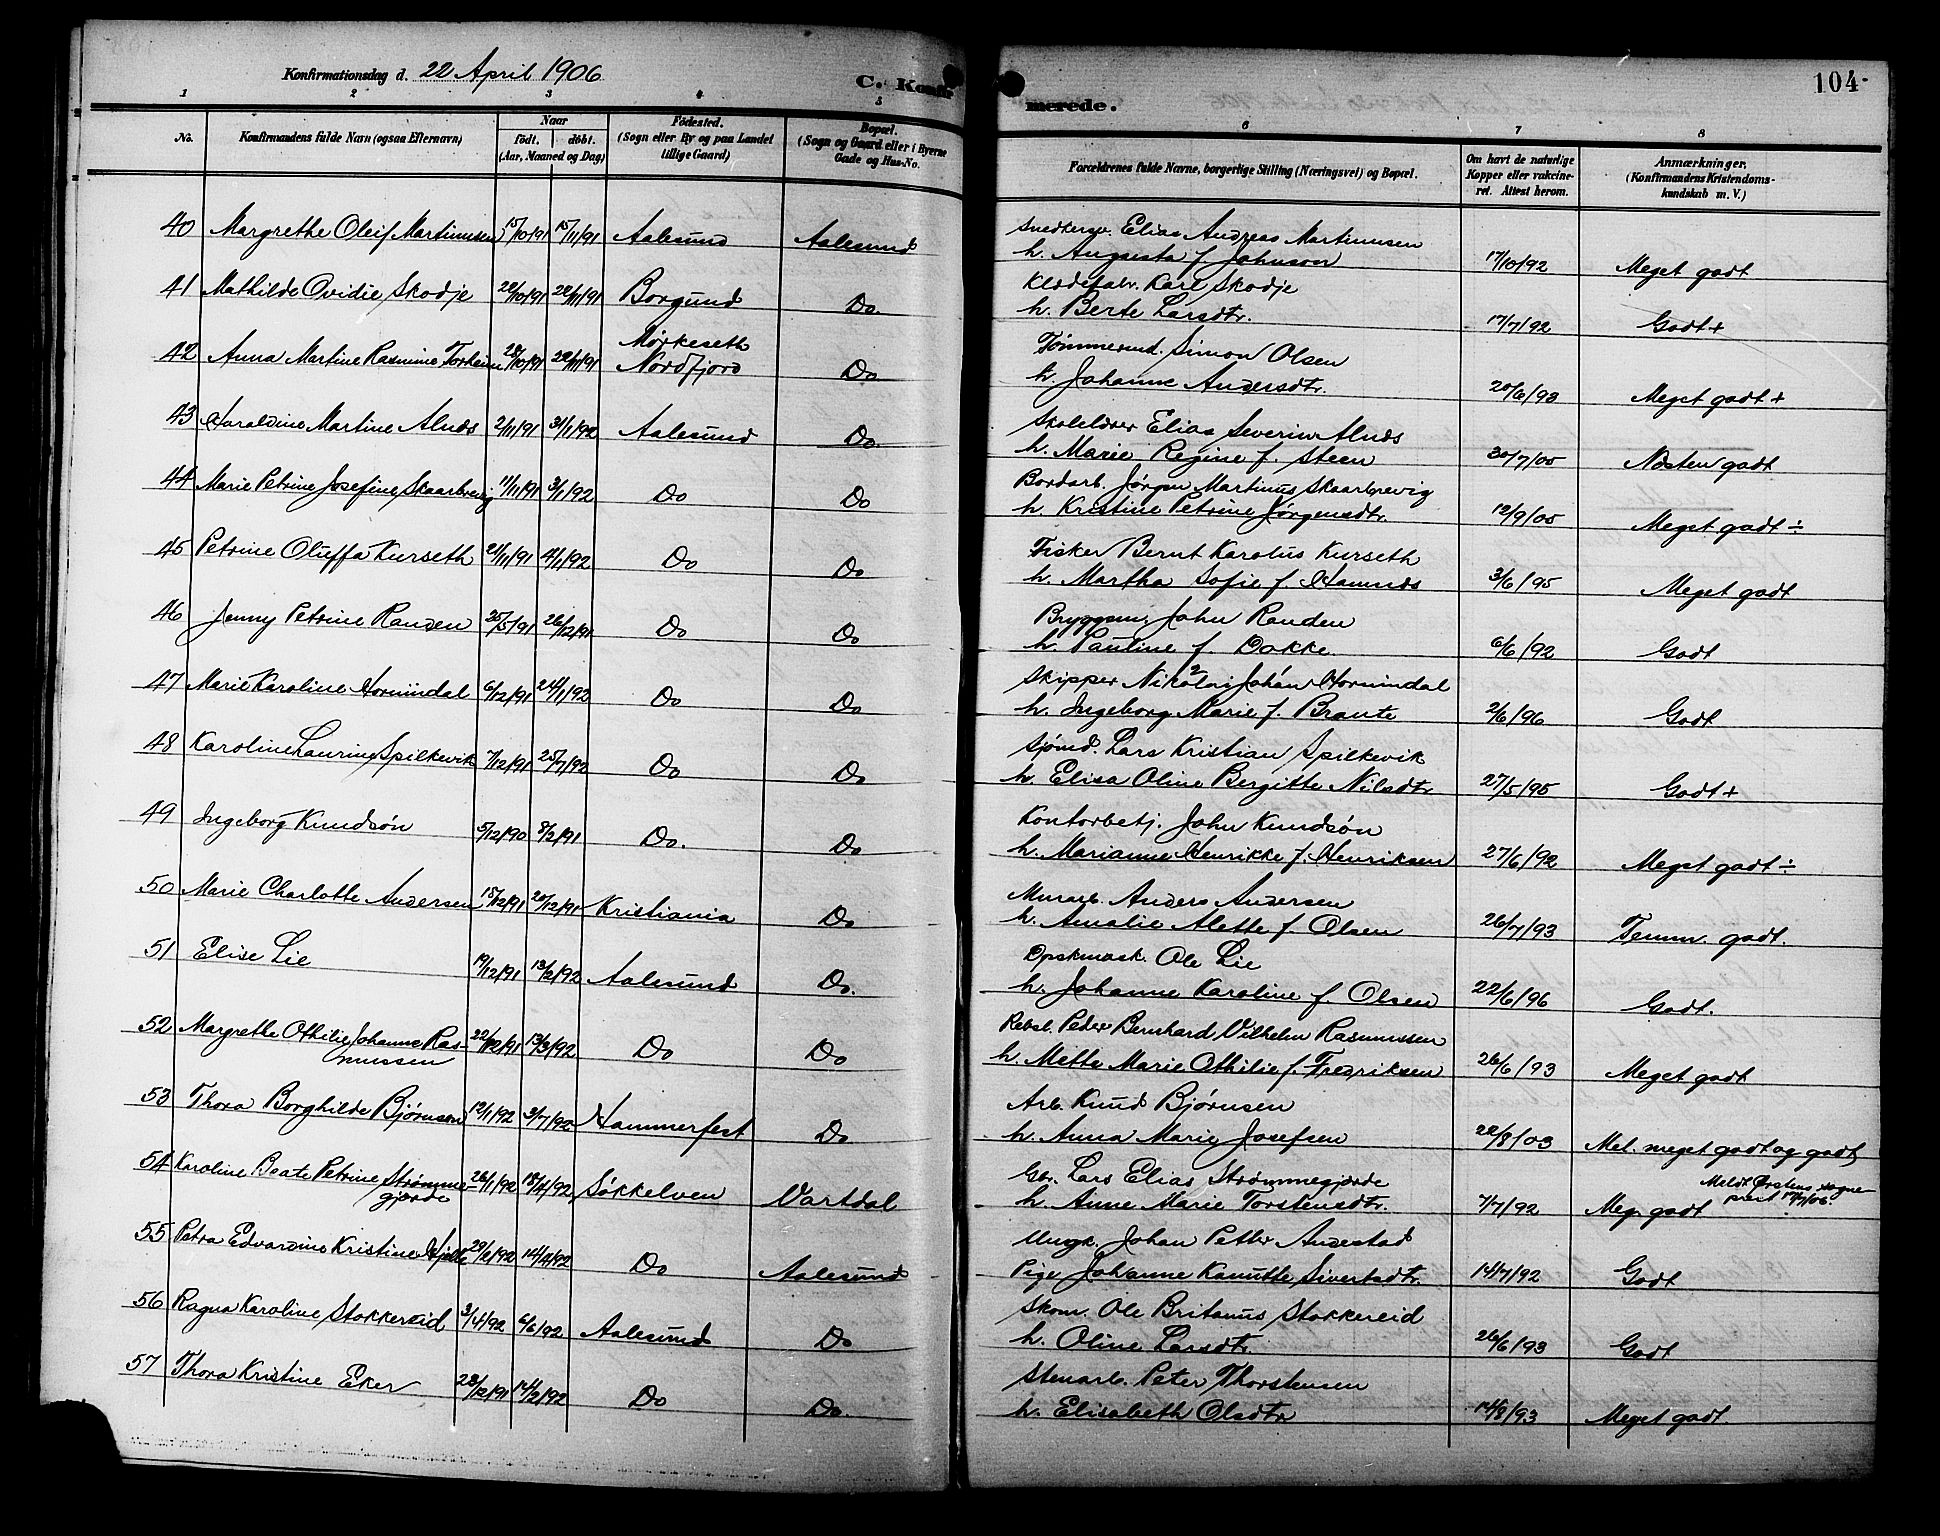 Konfirmationsdag d. 22 April 1906
C. Konfir
merede.
104
1 2 3 4 5 6 7 8
No.
Konfirmandens fulde Navn (ogsaa Efternavn)
Naar
født. døbt.
(Aar, Maaned og Dag)
Fødested.
(Sogn eller By og paa Landet
tillige Gaard)
Bopæl.
(Sogn og Gaard eller i Byerne
Gade og Hus-No.
Forældrenes fulde Navne, borgerlige Stilling (Næringsvei) og Bopæl.
Om havt de naturlige
Kopper eller vakcine-
ret. Attest herom.
Anmærkninger.
(Konfirmandens Kristendoms-
kundskab m. V.)
40 Margrethe Oleif Martinusen 15/10/91 15/11/91 Aalesund Aalesund Snedkersv. Elias Andreas Martinusen
h. Augusta f. Johnsen 17/10/92 Meget godt
41 Mathilde Ovidie Skodje 22/10/91 22/11/91 Borgund Do. Klædefabr. Karl Skodje
h. Berte Larsdtr. 17/7/92 Godt +
42 Anna Martine Rasmine Torheim 28/10/91 22/11/91 Mørkeseth
Nordfjord Do Tømmermd. Simon Olsen
h. Johanne Andersdtr. 20/6/93 Meget godt +
43 Haraldine Martine Alnæs 2/11/91 31/1/92 Aalesund Do. Skolelærer Elias Severin Alnæs
h. Marie Regine f. Steen 30/7/00 Næsten godt
44 Marie Petrine Josefine Skaarbrevig 11/11/91 3/1/92 Do Do Bordarb. Jørgen Martinus Skaarbrevig
h. Kristine Petrine Jørgensdtr. 12/9/05 Meget godt ÷
45 Petrine Oluffa Kurseth 21/11/91 4/1/92 Do Do Fisker Bernt Karolus Kurseth
h. Martha Sofie f. Hamnæs 3/6/95 Meget godt
46 Jenny Petrine Randen 25/5/91 26/12/91 Do Do Bryggem. John Randen
h. Pauline f. Dokke 6/6/92 Godt
47 Marie Karoline Hornindal 6/12/91 24/1/92 Do Do Skipper Nikolai Johan Hornindal
h. Ingeborg Marie f. Brante 2/6/96 Godt
48 Karoline Laurine Spilkevik 7/12/91 25/7/92 Do Do Sjømd. Lars Kristian Spilkevik
h. Elisa Oline Bergitte Nilsdtr 27/5/95 Godt +
49 Ingeborg Knudsøn 5/12/90 8/2/91 Do. Do Kontorbetj. John Knudsøn
h. Marianne Henrikke f. Henriksen 27/6/92 Meget godt ÷
50 Marie Charlotte Andersen 15/12/91 20/12/91 Kristiania Do Murarb. Anders Andersen
h. Amalie Alette f. Olsen 26/7/93 Temm. godt.
51 Elise Lie 19/12/91 13/2/92 Aalesund Do. Opskmask. Ole Lie
h. Johanne Karoline f. Olsen 22/6/96 Godt.
52 Margrethe Othilie Johanne Ras-
mussen 22/12/91 13/3/92 Do Do Rebsl. Peder Bernhard Vilhelm Rasmussen
h. Mette Marie Othilie f. Fredriksen 26/6/93 Meget godt
53 Thora Borghilde Bjørnsen 19/1/92 3/7/92 Hammerfest Do Arb. Knud Bjørnsen
h. Anna Marie Josefsen 22/8/03 Mel. meget godt og godt
54 Karoline Beate Petrine Strømme-
gjerde 26/1/92 18/4/92 Søkkelven Vartdal Gbr. Lars Elias Strømmegjerde
h. Anne Marie Torstensdtr. 7/7/92 Meg. godt
Meldt Ørstens sogne-
prest 17/7/06.
55 Petra Edvardine Kristine Hjelle 29/2/92 14/4/92 Do Aalesund Ungk. Johan Petter Andestad
Pige Johanne Kanutte Sivertsdtr. 14/7/92 Godt
56 Ragna Karoline Stokkereid 3/4/92 6/6/92 Aalesund Do Skom. Ole Britanus Stokkereid
h. Oline Larsdtr. 26/6/93 Godt
57 Thora Kristine Eker 23/12/91 14/2/92 Do Do. Stenarb. Peter Thorstensen
h. Elisabeth Olsdtr 14/8/93 Meget godt.